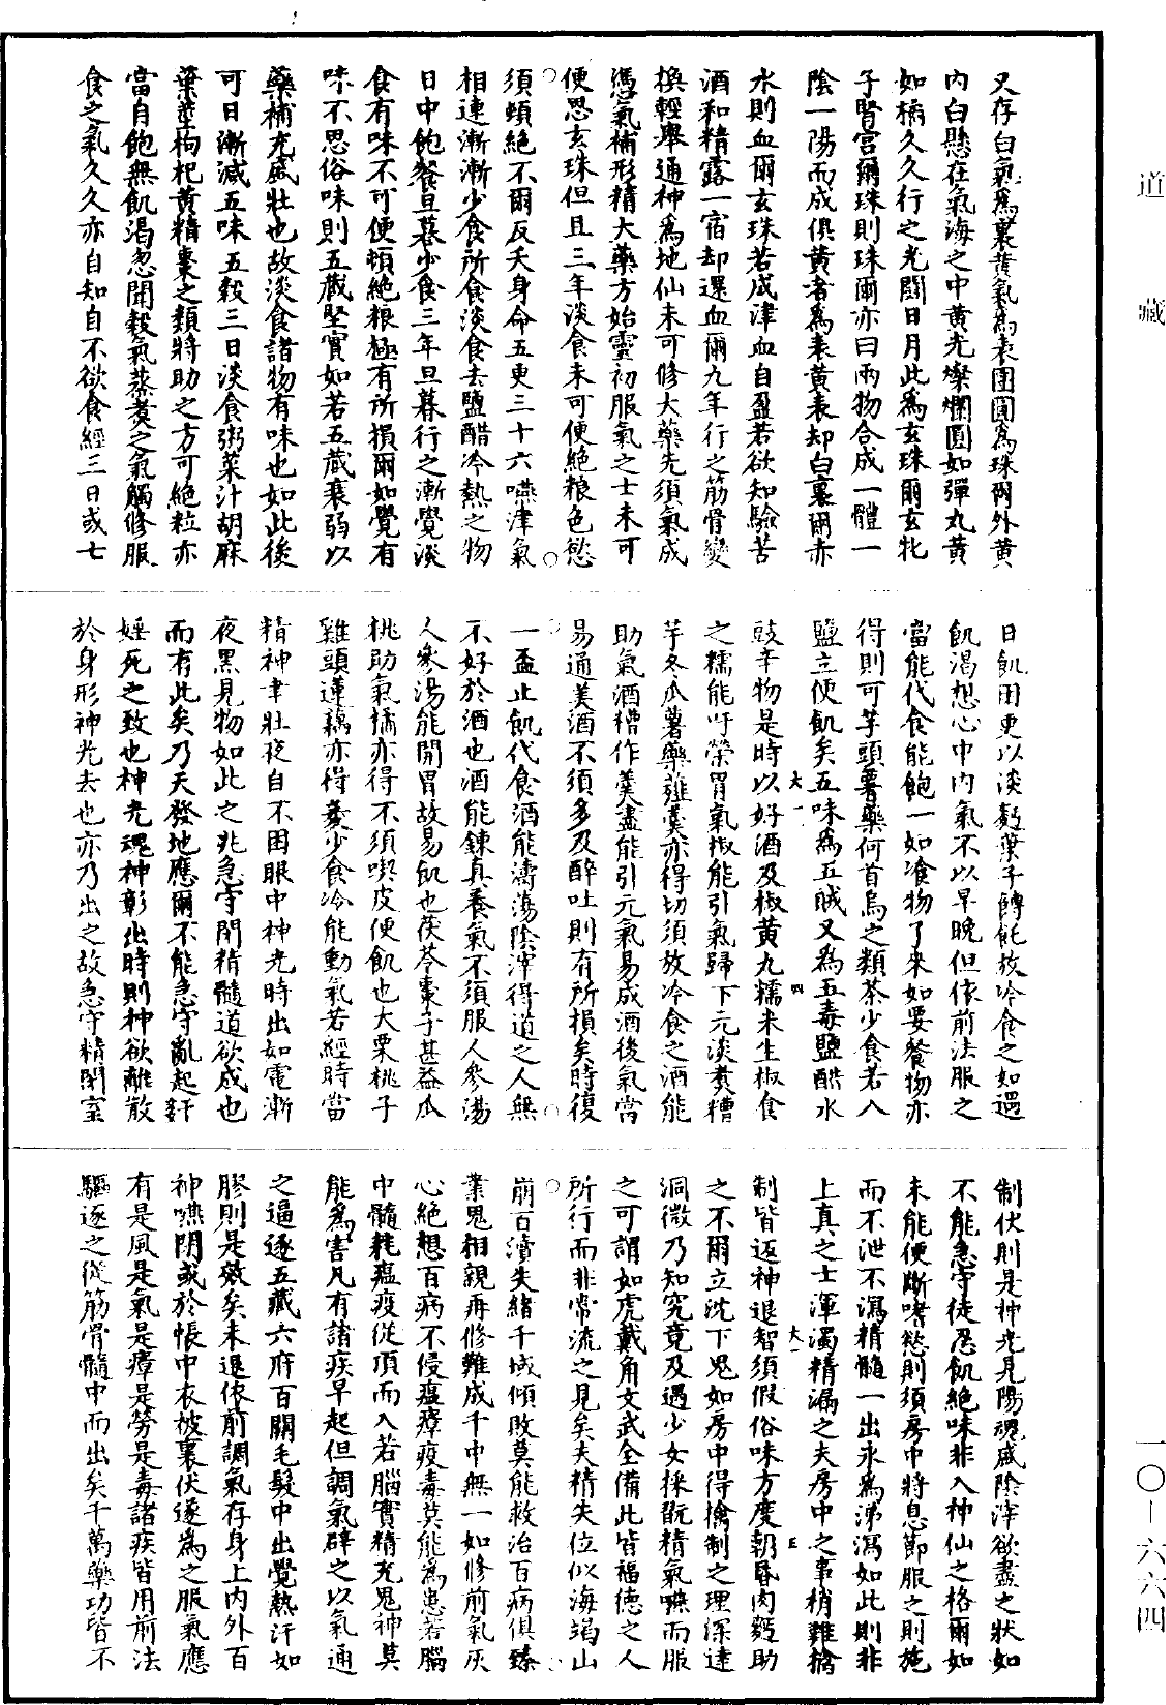 又存白氣爲裏黃氣爲表團圓爲珠爾外黃
內白懸在氣海之中黃光燦爛圓如彈丸黃
如橘久久行之光鬭日月此爲玄珠爾玄牝
子腎宮爾珠則珠爾亦曰兩物合成一體一
陰一陽而成俱黃者爲表黃表却白裏爾亦
水則血爾玄珠若成津血自盈若欲知驗苦
酒和精露一宿却還血爾九年行之筋骨變
換輕舉通神爲地仙未可修大藥先須氣成
憑氣補形精大藥方始靈初服氣之士未可
便思玄珠但且三年淡食未可便絕粮色慾
須頓絕不爾反夭身命五更三十六嚥津氣
相連漸漸少食所食淡食去鹽醋冷熱之物
日中飽餐旦暮少食三年旦暮行之漸覺淡
食有味不可便頓絕粮極有所損爾如覺有
味不思俗味則五藏堅實如若五藏衰弱以
藥補充盛壯也故淡食諸物有味也如此後
可日漸減五味五穀三日淡食粥菜汁胡麻
葉莖枸杞黃精棗之類將助之方可絕粒亦
當自飽無飢渴忽聞穀氣蒸煑之氣觸修服
食之氣久久亦自知自不欲食經三日或七
日飢困更以淡麪葉子餺飥放冷食之如遇
飢渴想心中內氣不以早晚但依前法服之
當能代食能飽一如飡物了來如要餐物亦
得則可芋頭薯藥何首烏之類茶少食若入
鹽立便飢矣五味爲五賊又爲五毒鹽醋水
豉辛物是時以好酒及椒黃九糯米生椒食
之糯能吁榮胃氣椒能引氣歸下元淡煑糟
芋冬瓜薯藥薤羹亦得切須放冷食之酒能
助氣酒糟作羹盡能引元氣易成酒後氣當
易通美酒不須多及醉吐則有所損矣時復
一盃止飢代食酒能濤蕩陰滓得道之人無
不好於酒也酒能鍊真養氣不須服人參湯
人參湯能開胃故易飢也茯苓棗子甚益瓜
桃助氣橘亦得不須喫皮便飢也大栗桃子
雞頭蓮藕亦得羹少食冷能動氣若經時當
精神聿壯夜自不困眼中神光時出如電漸
夜黑見物如此之兆急守閉精髓道欲成也
而有此矣乃天發地應爾不能急守亂起姧
婬死之致也神光魂神彰出時則神欲離散
於身形神光去也亦乃出之故急守精閉室
制伏則是神光見陽魂盛陰滓欲盡之狀如
不能急守徒忍飢絕味非入神仙之格爾如
未能便斷嗜慾則須房中將息節服之則施
而不泄不瀉精髓一出永爲涕瀉如此則非
上真之士渾濁精漏之夫房中之事稍難擒
制皆返神退智須假俗味方度朝昏肉麪助
之不爾立沈下鬼如房中得擒制之理深達
洞微乃知究竟及遇少女採翫精氣嚥而服
之可謂如虎戴角文武全備此皆福德之人
所行而非常流之見矣夫精失位似海竭山
崩百瀆失緒千城傾敗莫能救治百病俱臻
業鬼相親再修難成千中無一如修前氣灰
心絕想百病不侵瘟瘴疫毒莫能爲患若腦
中髓耗瘟疫從頂而入若腦實精光鬼神莫
能爲害凡有諸疾早起但調氣辟之以氣通
之逼逐五藏六府百關毛髮中出覺熱汗如
膠則是效矣未退依前調氣存身上內外百
神嚥閉或於帳中衣被裏伏遂爲之服氣應
有是風是氣是瘴是勞是毒諸疾皆用前法
驅逐之從筋骨髓中而出矣千萬藥功皆不
大一
四
大一
五
道藏
一〇—六六四